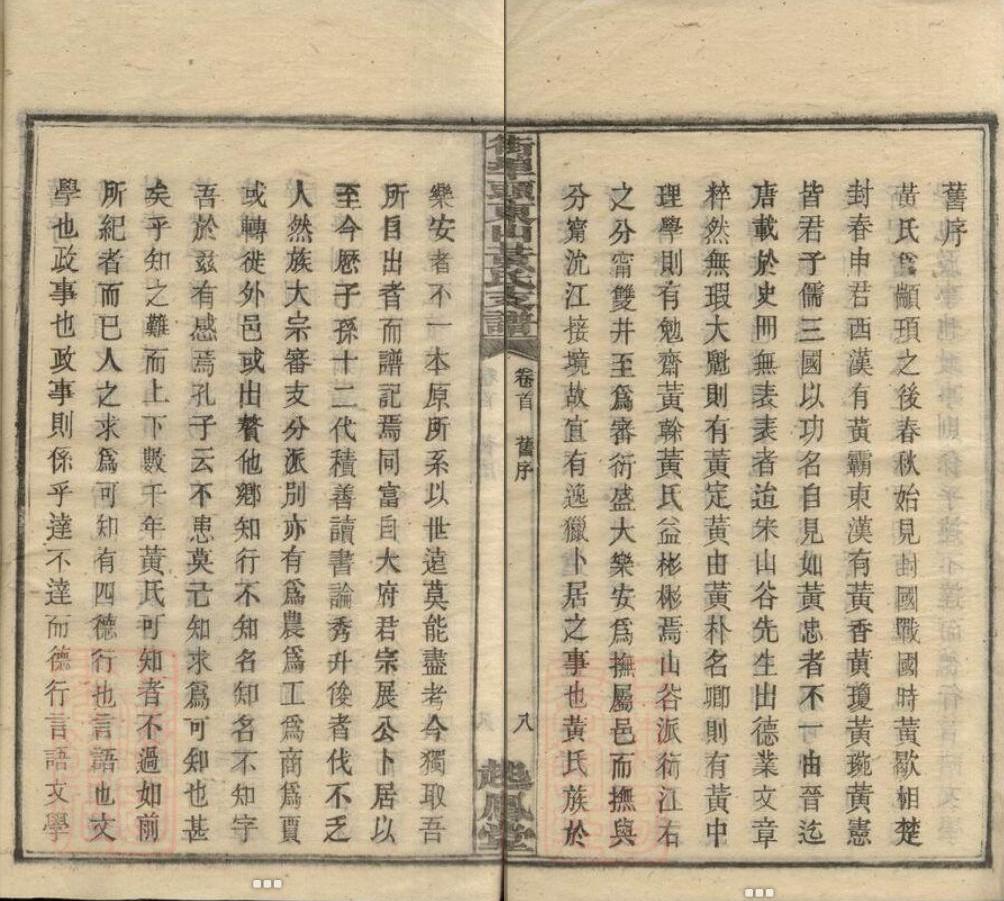 舊序
黃氏爲顓頊之後春秋始見封國戰國時黃歇相楚
封春申君西漢有黃霸東漢有黃香黃瓊黃琬黃憲
皆君子儒三國以功名自見如黃忠者不一由晉迄
唐載於史冊無表表者迨宋山谷先生出德業文章
粹然無瑕大魁則有黃定黃由黃朴名卿則有黃中
理學則有勉齋黃榦黃氏益彬彬焉山谷派衍江右
之分甯雙井至爲審衍盛大樂安爲撫屬邑而撫與
分甯沈江接境故宜有逸獵卜居之事也黃氏族於
衙單頭東山黃氏支譜
卷首
舊序
八
起鳳堂
樂安者不一本原所系以世遠莫能盡考今獨取吾
所自出者而譜記焉同富自大府君宗展公卜居以
至今歷子孫十二代積善讀書論秀升俊者伐不乏
人然族大宗審支分派別亦有爲農爲工爲商爲賈
或轉徙外邑或出贅他鄉知行不知名知名不知字
吾於茲有感焉孔子云不患莫己知求爲可知也甚
矣乎知之難而上下數千年黃氏可知者不過如前
所紀者而已人之求爲可知有四德行也言語也文
學也政事也政事則係乎達不達而德行言語文學